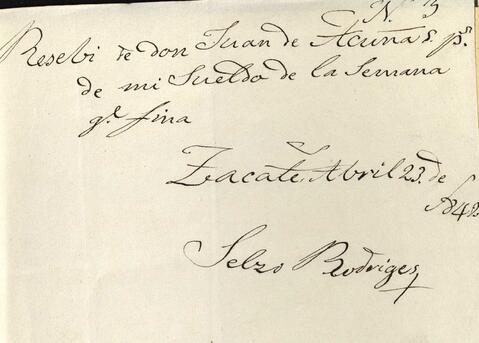 N.º 3
Resebi de don Juan de Acuña 5 p.s
de mi Sueldo de la Semana
q.e fina
Zacate. Abril 23 de
1842
Selzo Rodriges